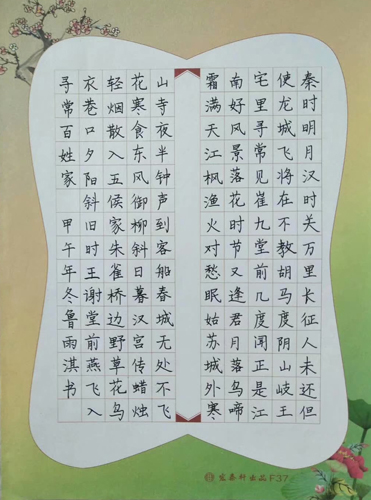 秦时明月汉时关万里长征人未还但
使龙城飞将在不教胡马度阴山岐王
宅里寻常见崔九堂前几度闻正是江
南好风景落花时节又逢君月落乌啼
霜满天江枫渔火对愁眠姑苏城外寒
山寺夜半钟声到客船春城无处不飞
花寒食东风御柳斜日暮汉宫传蜡烛
轻烟散入五侯家朱雀桥边野草花乌
衣巷口夕阳斜旧时王谢堂前燕飞入
寻常百姓家 甲午年冬鲁雨淇书
出品 F37